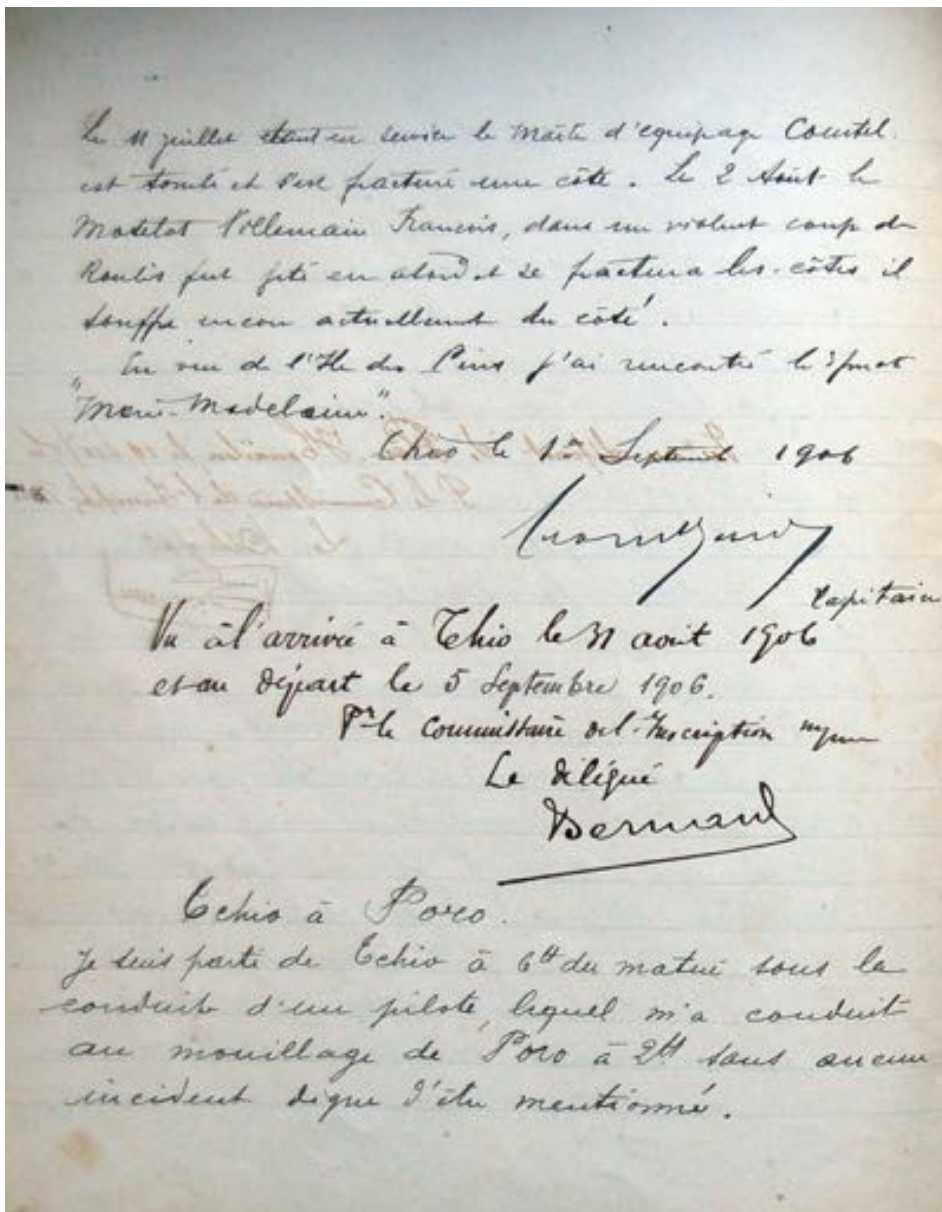 Le 11 juillet étant en service le Maître d'équipage Courtel
est tombé et s'est fracturé une côte. Le 2 Août le
Matelot Villemain Francois, dans un violent coup de
Roulis fut jeté en abord et se fractura les côtes il
souffre encore actuellement du côté.
En vue de l'Ile des Pins j'ai rencontré le 3/mat
"Marie-Madeleine".
Thio le 1er Septembre 1906
Capitaine
Vu à l'arrivée à Thio le 31 août 1906
et au départ le 5 Septembre 1906.
Pr le Commissaire de l'Inscription mme
Le délégué
Bernard
Tchio à Poro.
Je suis parti de Tchio à 6H du matin sous la
conduite d'un pilote, lequel m'a conduit
au mouillage de Poro à 2H sans aucun
incident digne d'être mentionné.